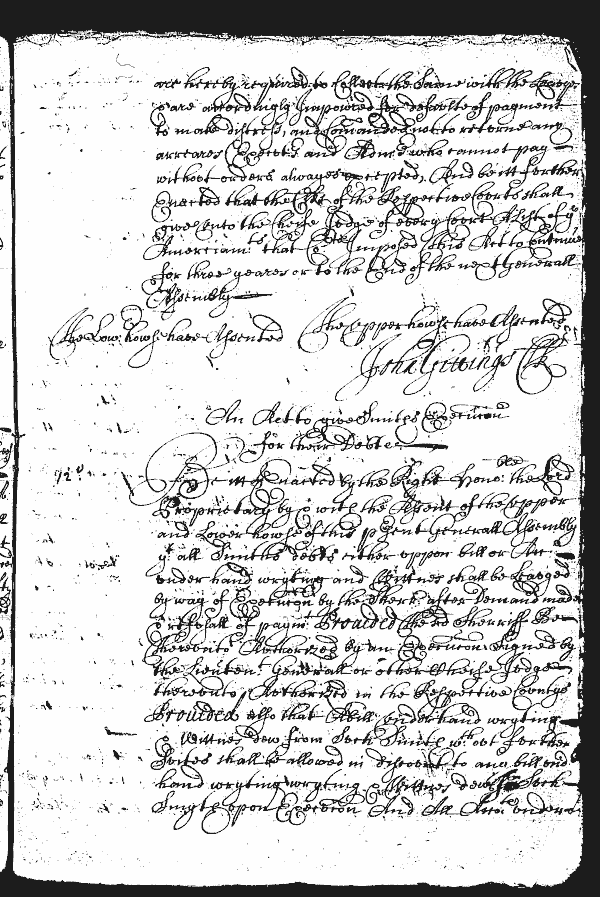 are hereby required to Collect the same with the
& are accordingly Impowred for default of payment
to make distress, and Comanded not to returne any
arreares Execut:s and Adm:rs who cannot pay
without orders alwayes excepted, And be itt further
Enacted that the Clks of the Respective Courts shall
give unto the Cheife Judge of every Court A list of ye
Amerciam:ts that Imposed this Act to Continue
for three yeares or to the End of the next Generall
Assembly
The Low: howse have Assented The vpper howse have Assented
John Gittings Clk
An Act to give Smiths Execution
for their Debts
Be itt Enacted by the Right Hono:ble the Lord
Proprietary by & with the Assent of the vpper
and Lower howse of this present Generall Assembly
yt all Smiths debts either vppon bill or Acc:
vnder hand wryting and Wittnes shall be Leavyed
by way of Execucon by the Sherr: after Demand made
& refusall of paym:t Prouided the sd Sherriff Be
therevnto Authorized by an Execucon Signed by
the Lieuten:t Generall or other Cheife Judge
therevnto Authorized in the Respective Countys
Prouided also that A bill vnder hand wryting
& Wittnes dew from Such Smith wth out further
Suites shall be allowed in discount to any bill vnd
hand wryting wryting & Wittnes dew Such
Smyth vpon Execucon And All Acc:ts vnder